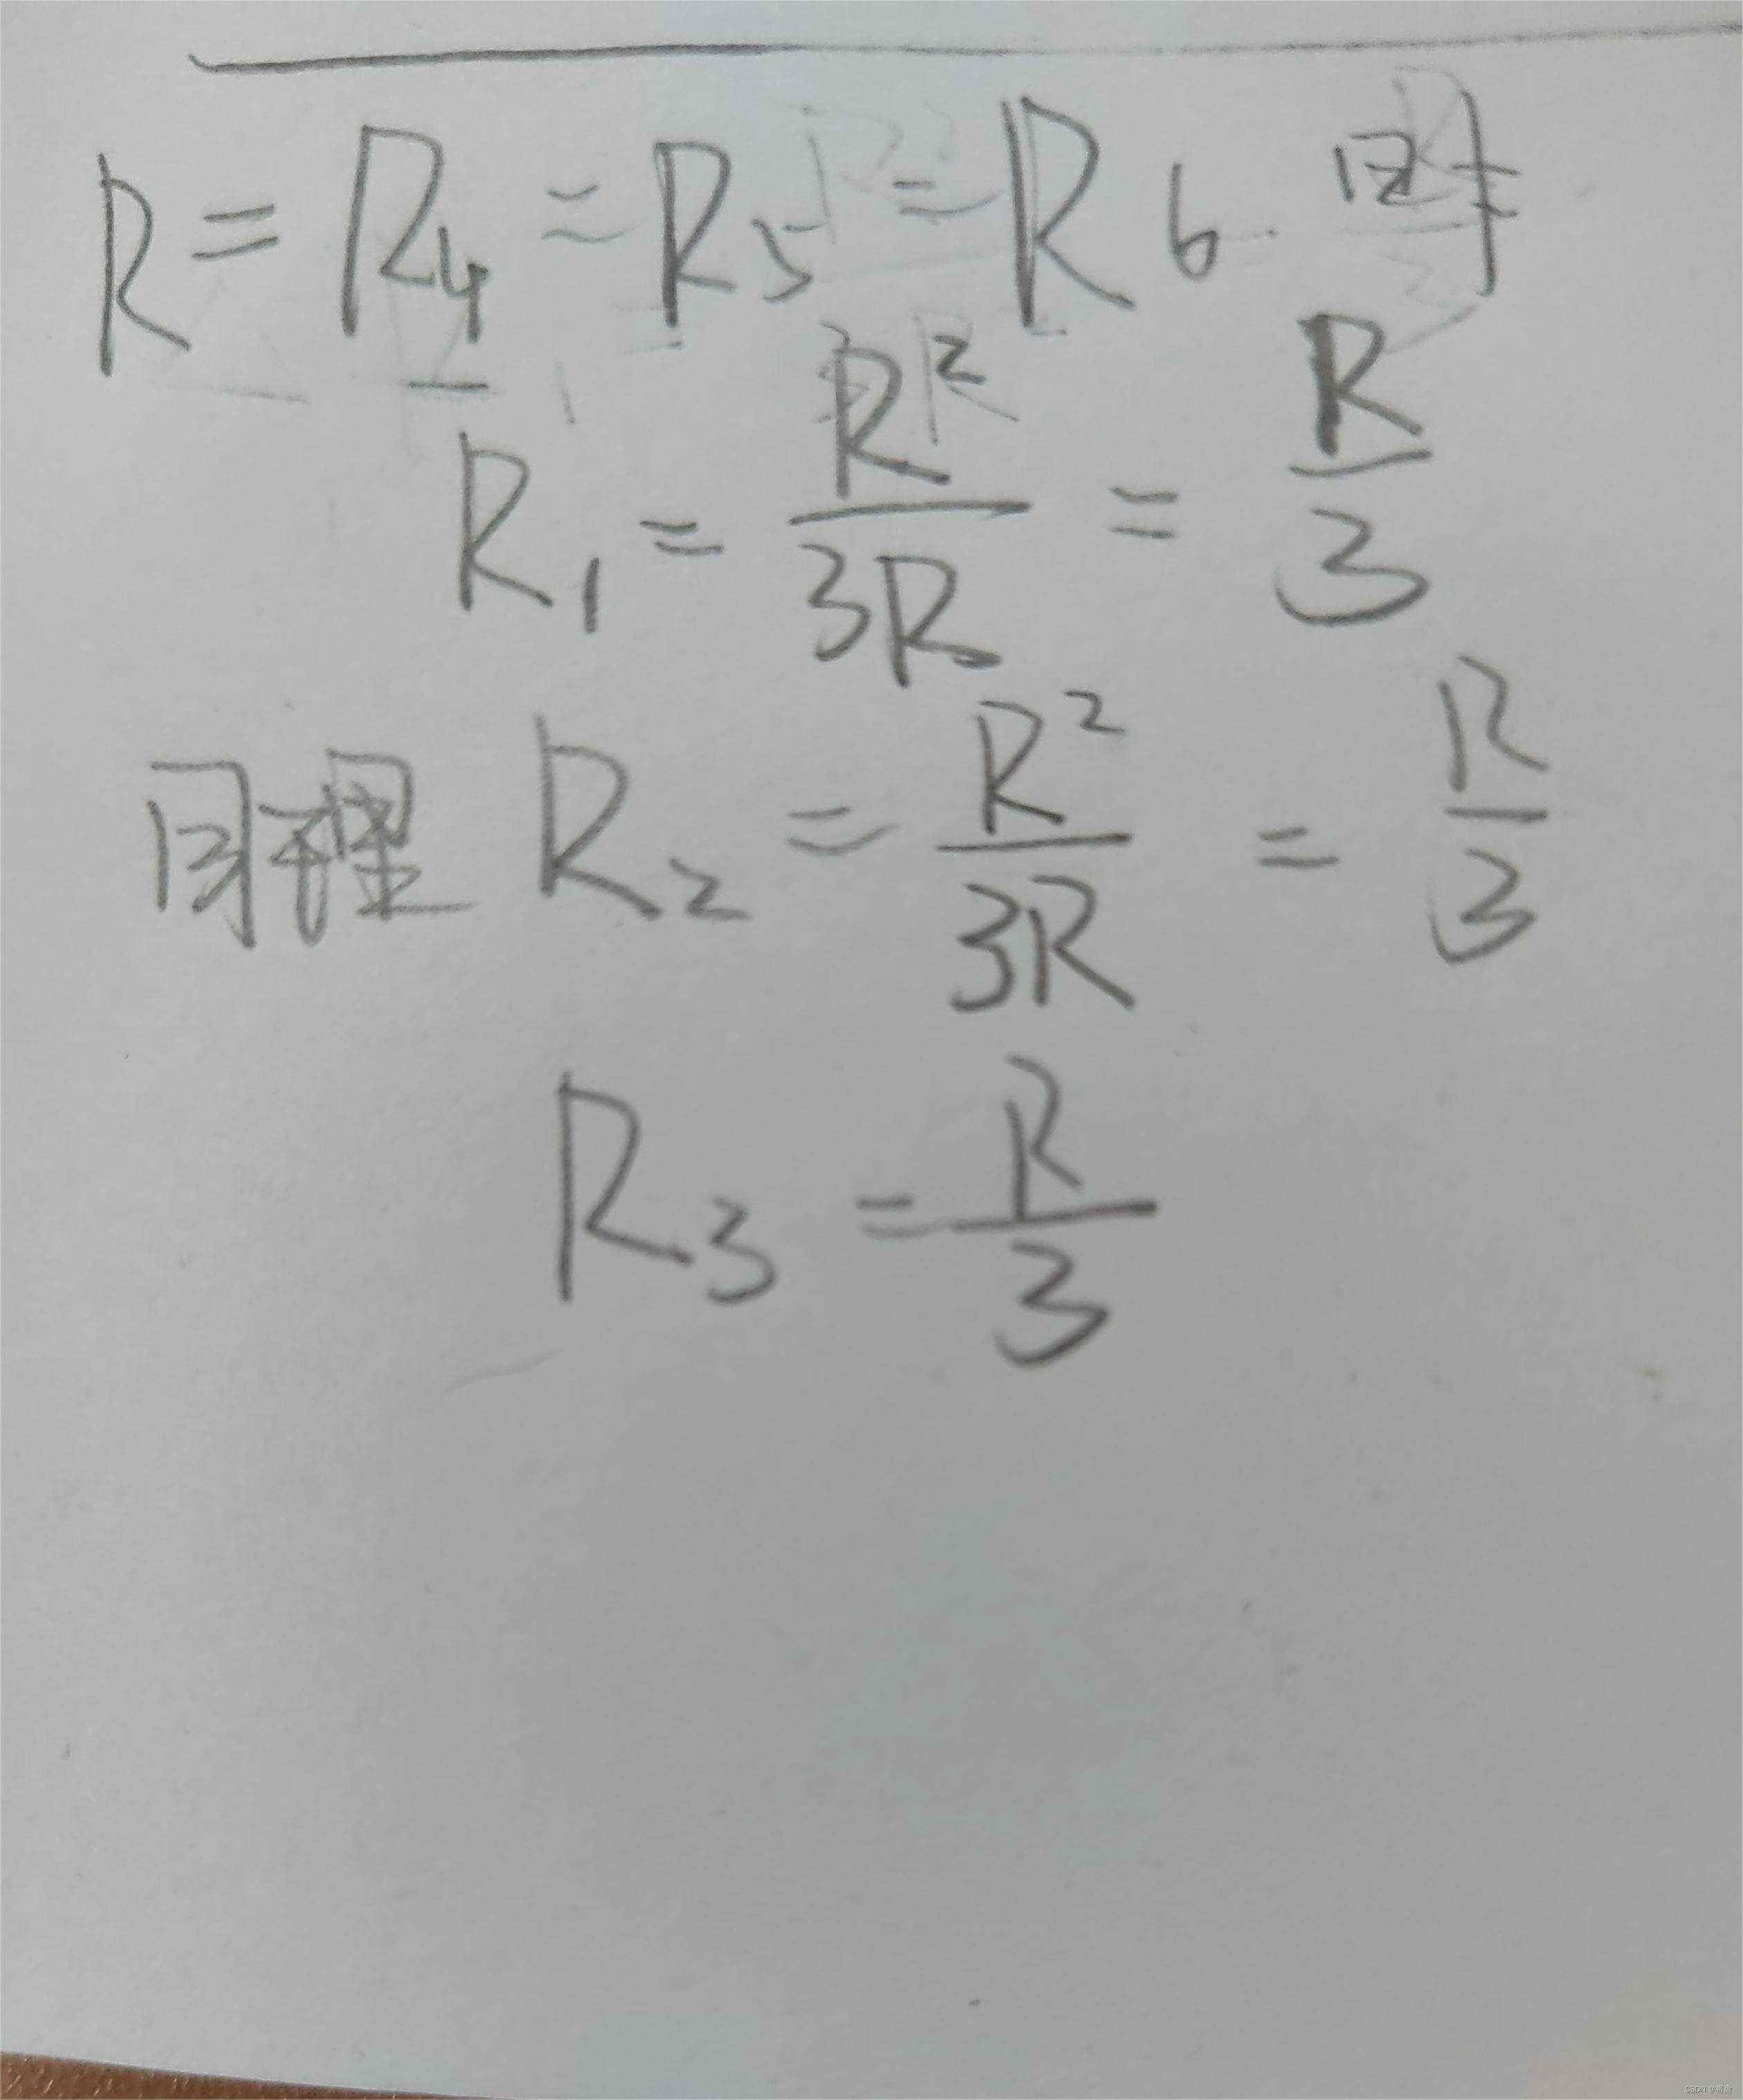 R = R4 = R5 = R6 时
R1 = R²/3R = R/3
同理 R2 = R²/3R = R/3
R3 = R/3